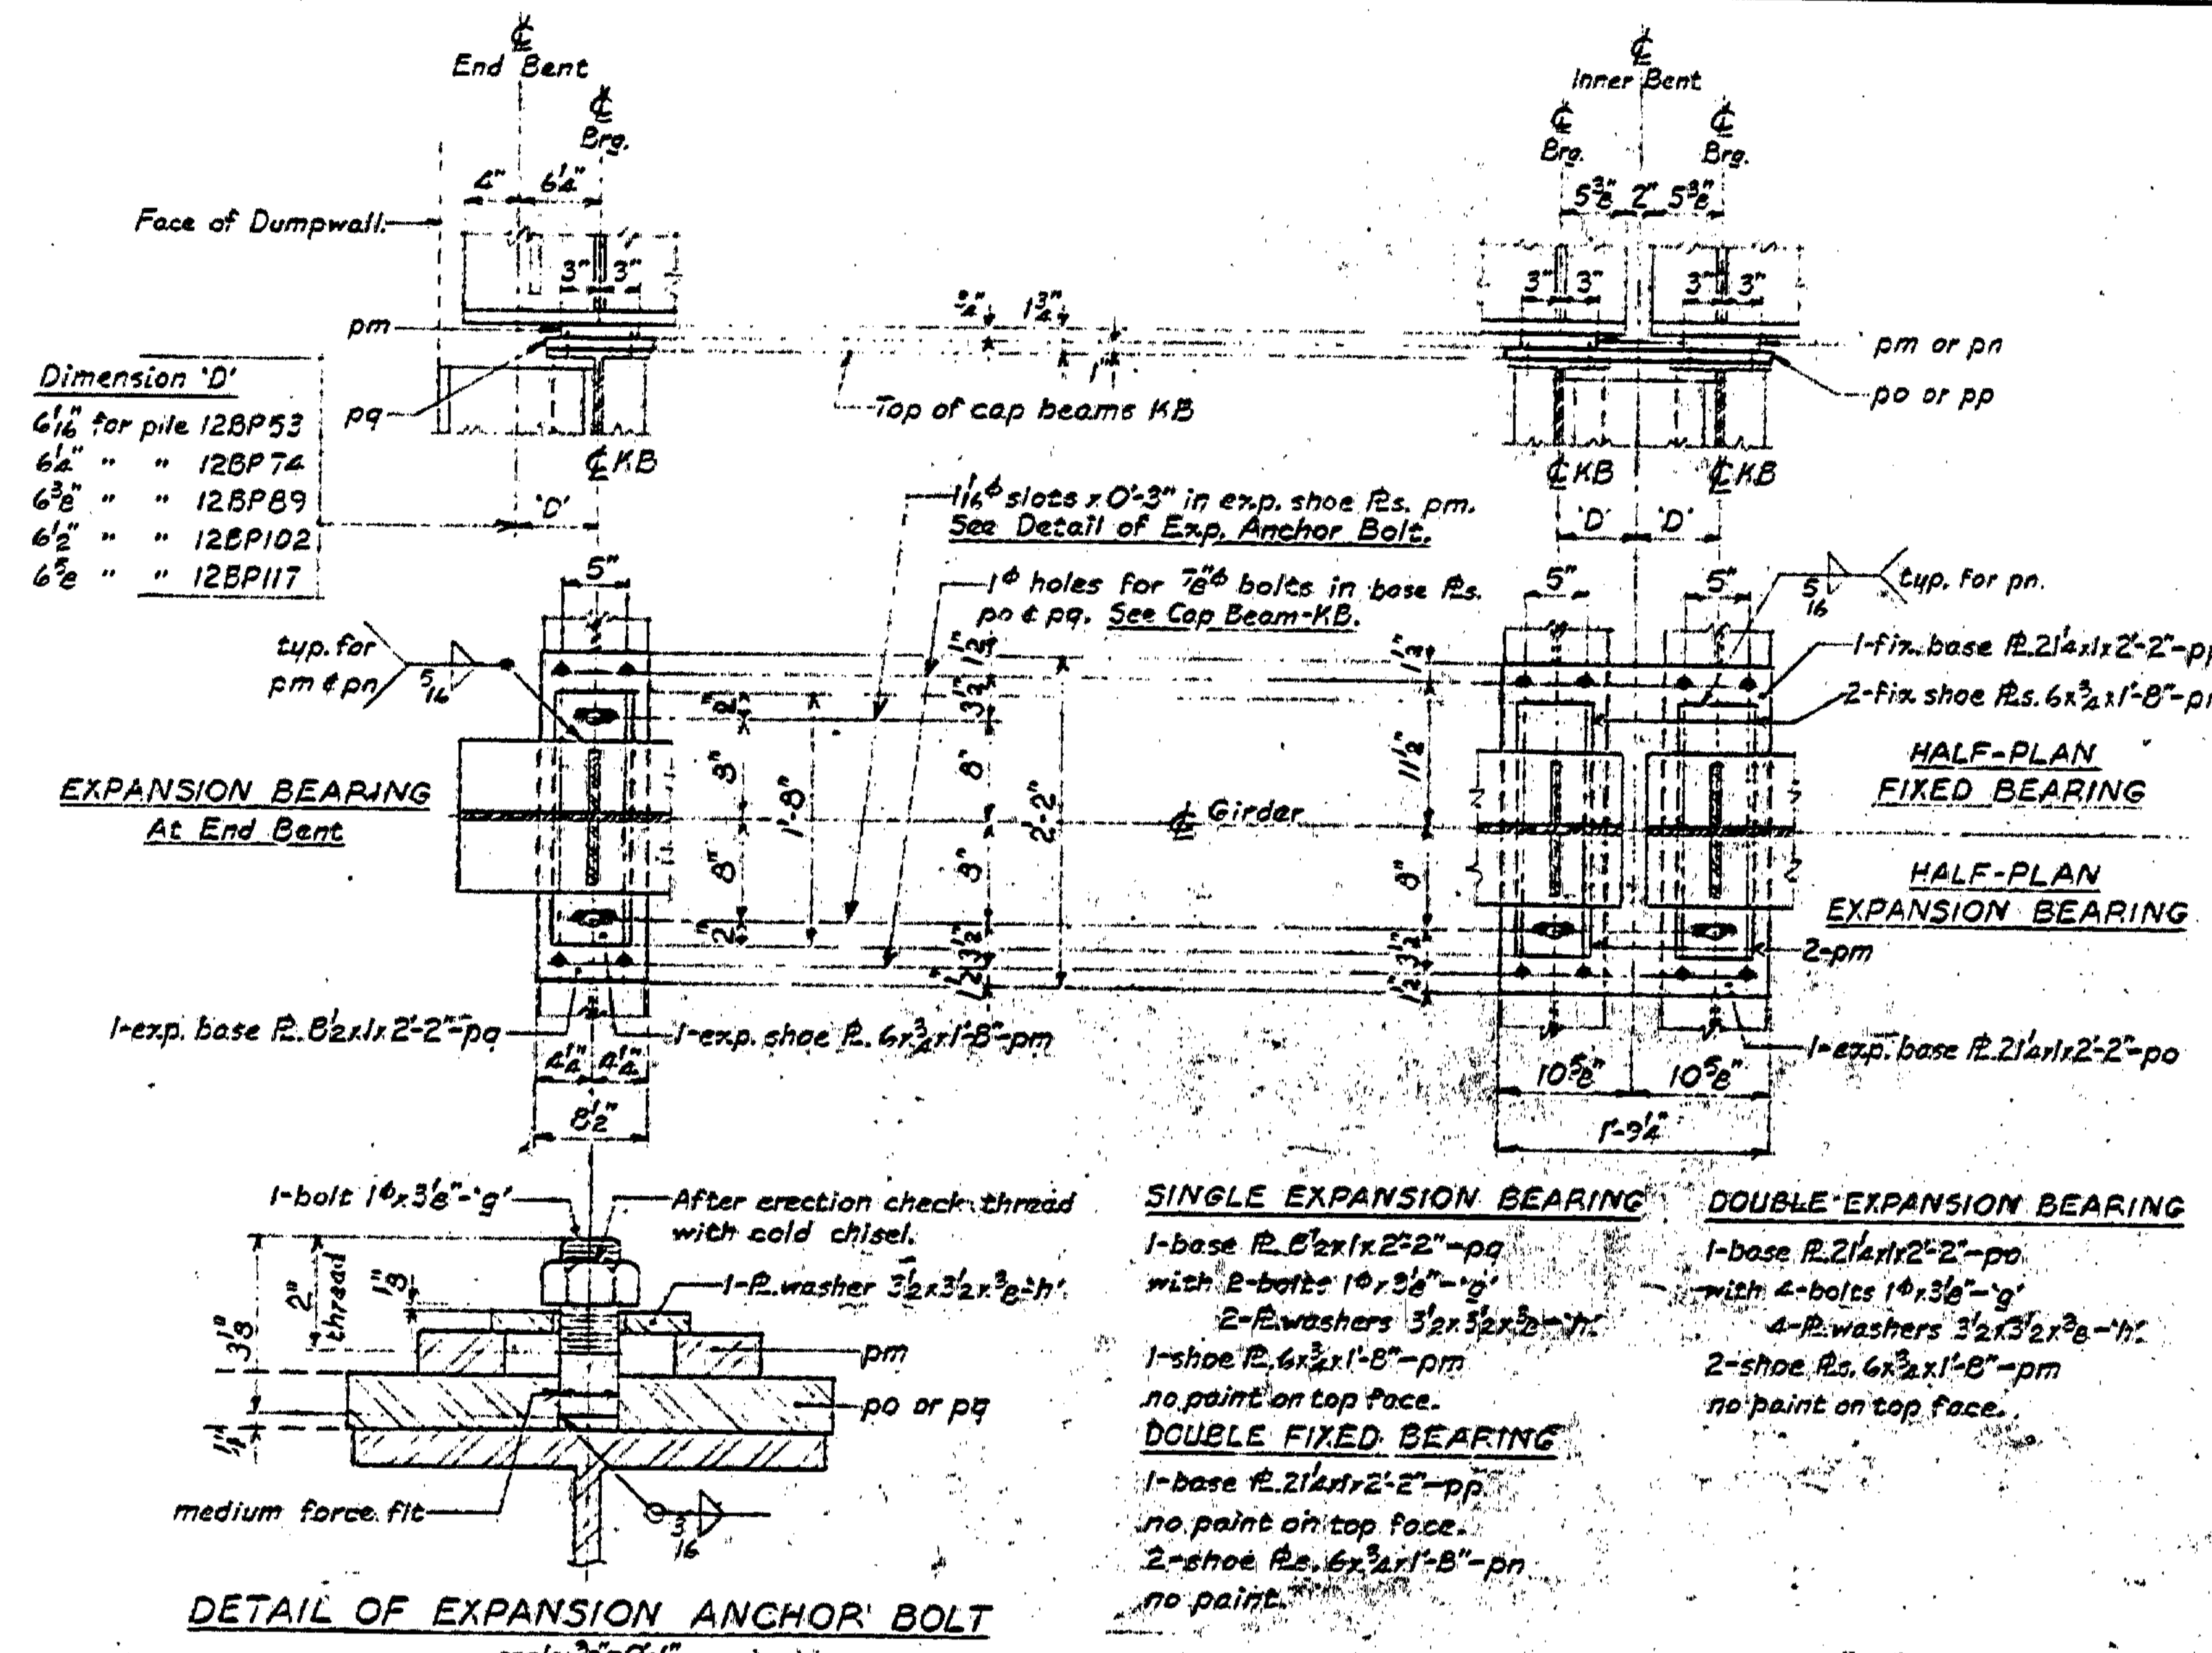 ℄
End Bent
℄
Brg.
4" 6¼"
Face of Dumpwall.
3" 3"
pm
pq
℄ KB
'D'
Dimension 'D'
6 1/16" for pile 12BP53
6¼" " " 12BP74
6⅜" " " 12BP89
6½" " " 12BP102
6⅝" " " 12BP117
¾" 1¾"
1"
Top of cap beams KB
℄
Inner Bent
℄
Brg.
℄
Brg.
5⅜" 2" 5⅜"
3" 3"
3" 3"
pm or pn
po or pp
℄ KB
℄ KB
'D' 'D'
1 1/16ϕ slots x 0'-3" in exp. shoe ℞s. pm.
See Detail of Exp. Anchor Bolt.
1ϕ holes for ⅞"ϕ bolts in base ℞s.
po & pq. See Cap Beam-KB.
typ. for
pm & pn
5/16
5"
EXPANSION BEARING
At End Bent
2"
8"
8"
2"
1'-8"
1½"
3½"
8"
8"
3½"
1½"
2'-2"
℄ Girder
1-exp. base ℞. 8½x1x2'-2"-pq
1-exp. shoe ℞. 6x¾x1'-8"-pm
4¼" 4¼"
8½"
5" 5"
5/16
typ. for pn.
1-fix. base ℞. 21¼x1x2'-2"-pp
2-fix shoe ℞s. 6x¾x1'-8"-pn
1½"
11½"
8"
3½"
1½"
HALF-PLAN
FIXED BEARING
HALF-PLAN
EXPANSION BEARING
2-pm
1-exp. base ℞. 21¼x1x2'-2"-po
10⅝" 10⅝"
1'-9¼"
1-bolt 1ϕx3⅛"-'g'
After erection check thread
with cold chisel.
1-℞. washer 3½x3½x⅜-'h'
3⅛"
2"
thread
⅛"
pm
po or pq
¼"
medium force fit
3/16
DETAIL OF EXPANSION ANCHOR BOLT
SINGLE EXPANSION BEARING
1-base ℞. 8½x1x2'-2"-pq
with 2-bolts 1ϕx3⅛"-'g'
2-℞. washers 3½x3½x⅜-'h'
1-shoe ℞. 6x¾x1'-8"-pm
no paint on top face.
DOUBLE FIXED BEARING
1-base ℞. 21¼x1x2'-2"-pp
no paint on top face.
2-shoe ℞s. 6x¾x1'-8"-pn
no paint.
DOUBLE EXPANSION BEARING
1-base ℞. 21¼x1x2'-2"-po
with 4-bolts 1ϕx3⅛"-'g'
4-℞. washers 3½x3½x⅜-'h'
2-shoe ℞s. 6x¾x1'-8"-pm
no paint on top face.